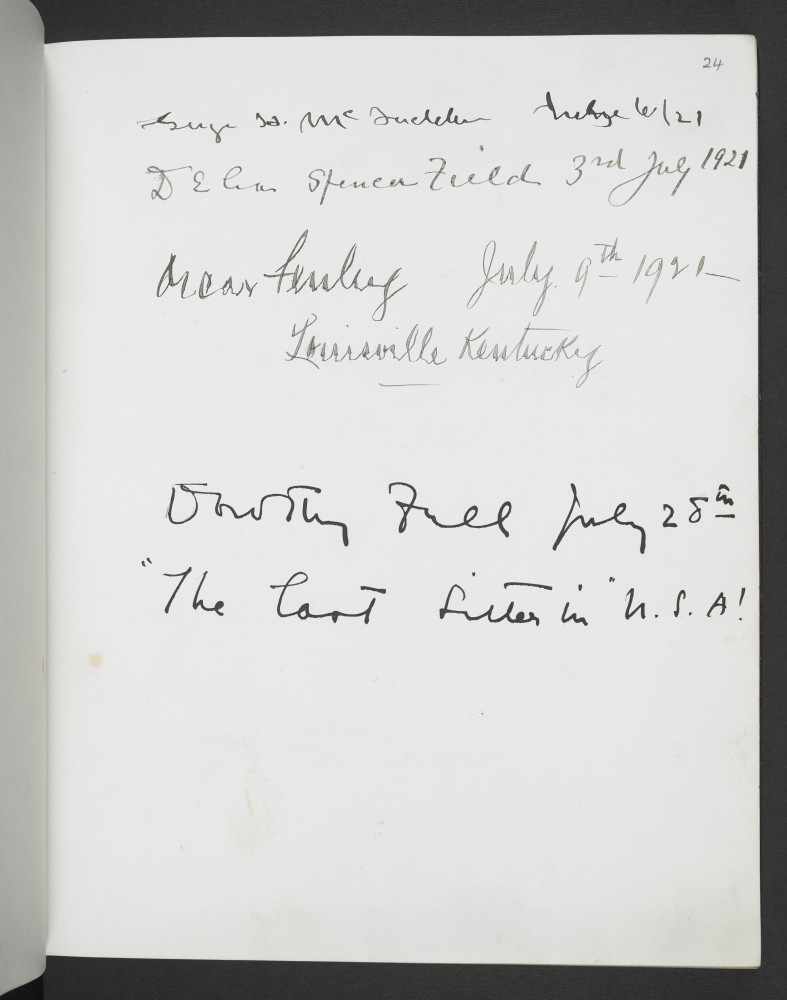 24
George H. McFadden 6/21
Spencer Field 3rd July 1921
Oscar Fenley July 9th 1921
Louisville Kentucky
Dorothy Field July 28th
"The last Sitter in" U.S.A!